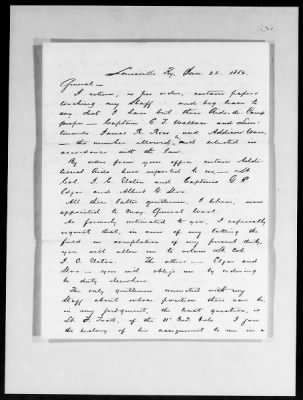 Louisville Ky. Jan. 28. 1863.
General—
I return, as per order, certain papers
touching my Staff and beg leave to
say that I have but three Aides de Camp
proper — Captain E. T. Wallace and Lieu-
tenants James R. Ross and Addison Ware,
— the number allowed, and selected in
accordance with the law.
By order from your office, certain Addi-
tional Aids have reported to me, — Lt
Col. I. C. Elston and Captains G. P.
Edgar and Albert G.
All these latter gentlemen, I believe, were
appointed to Maj. General
As formerly intimated to you, I especially
request that, in case of my taking the
field on completion of my present duty,
you will allow me to retain Lt Col.
I. C. Elston. The others — Edgar and
— you will oblige me by ordering
to duty elsewhere.
The only gentleman connected with my
Staff about whose position there can be,
in my judgment, the least question, is
Lt. F. of the 11" Ind. Vols. I gave
the history of his assignment to me in a